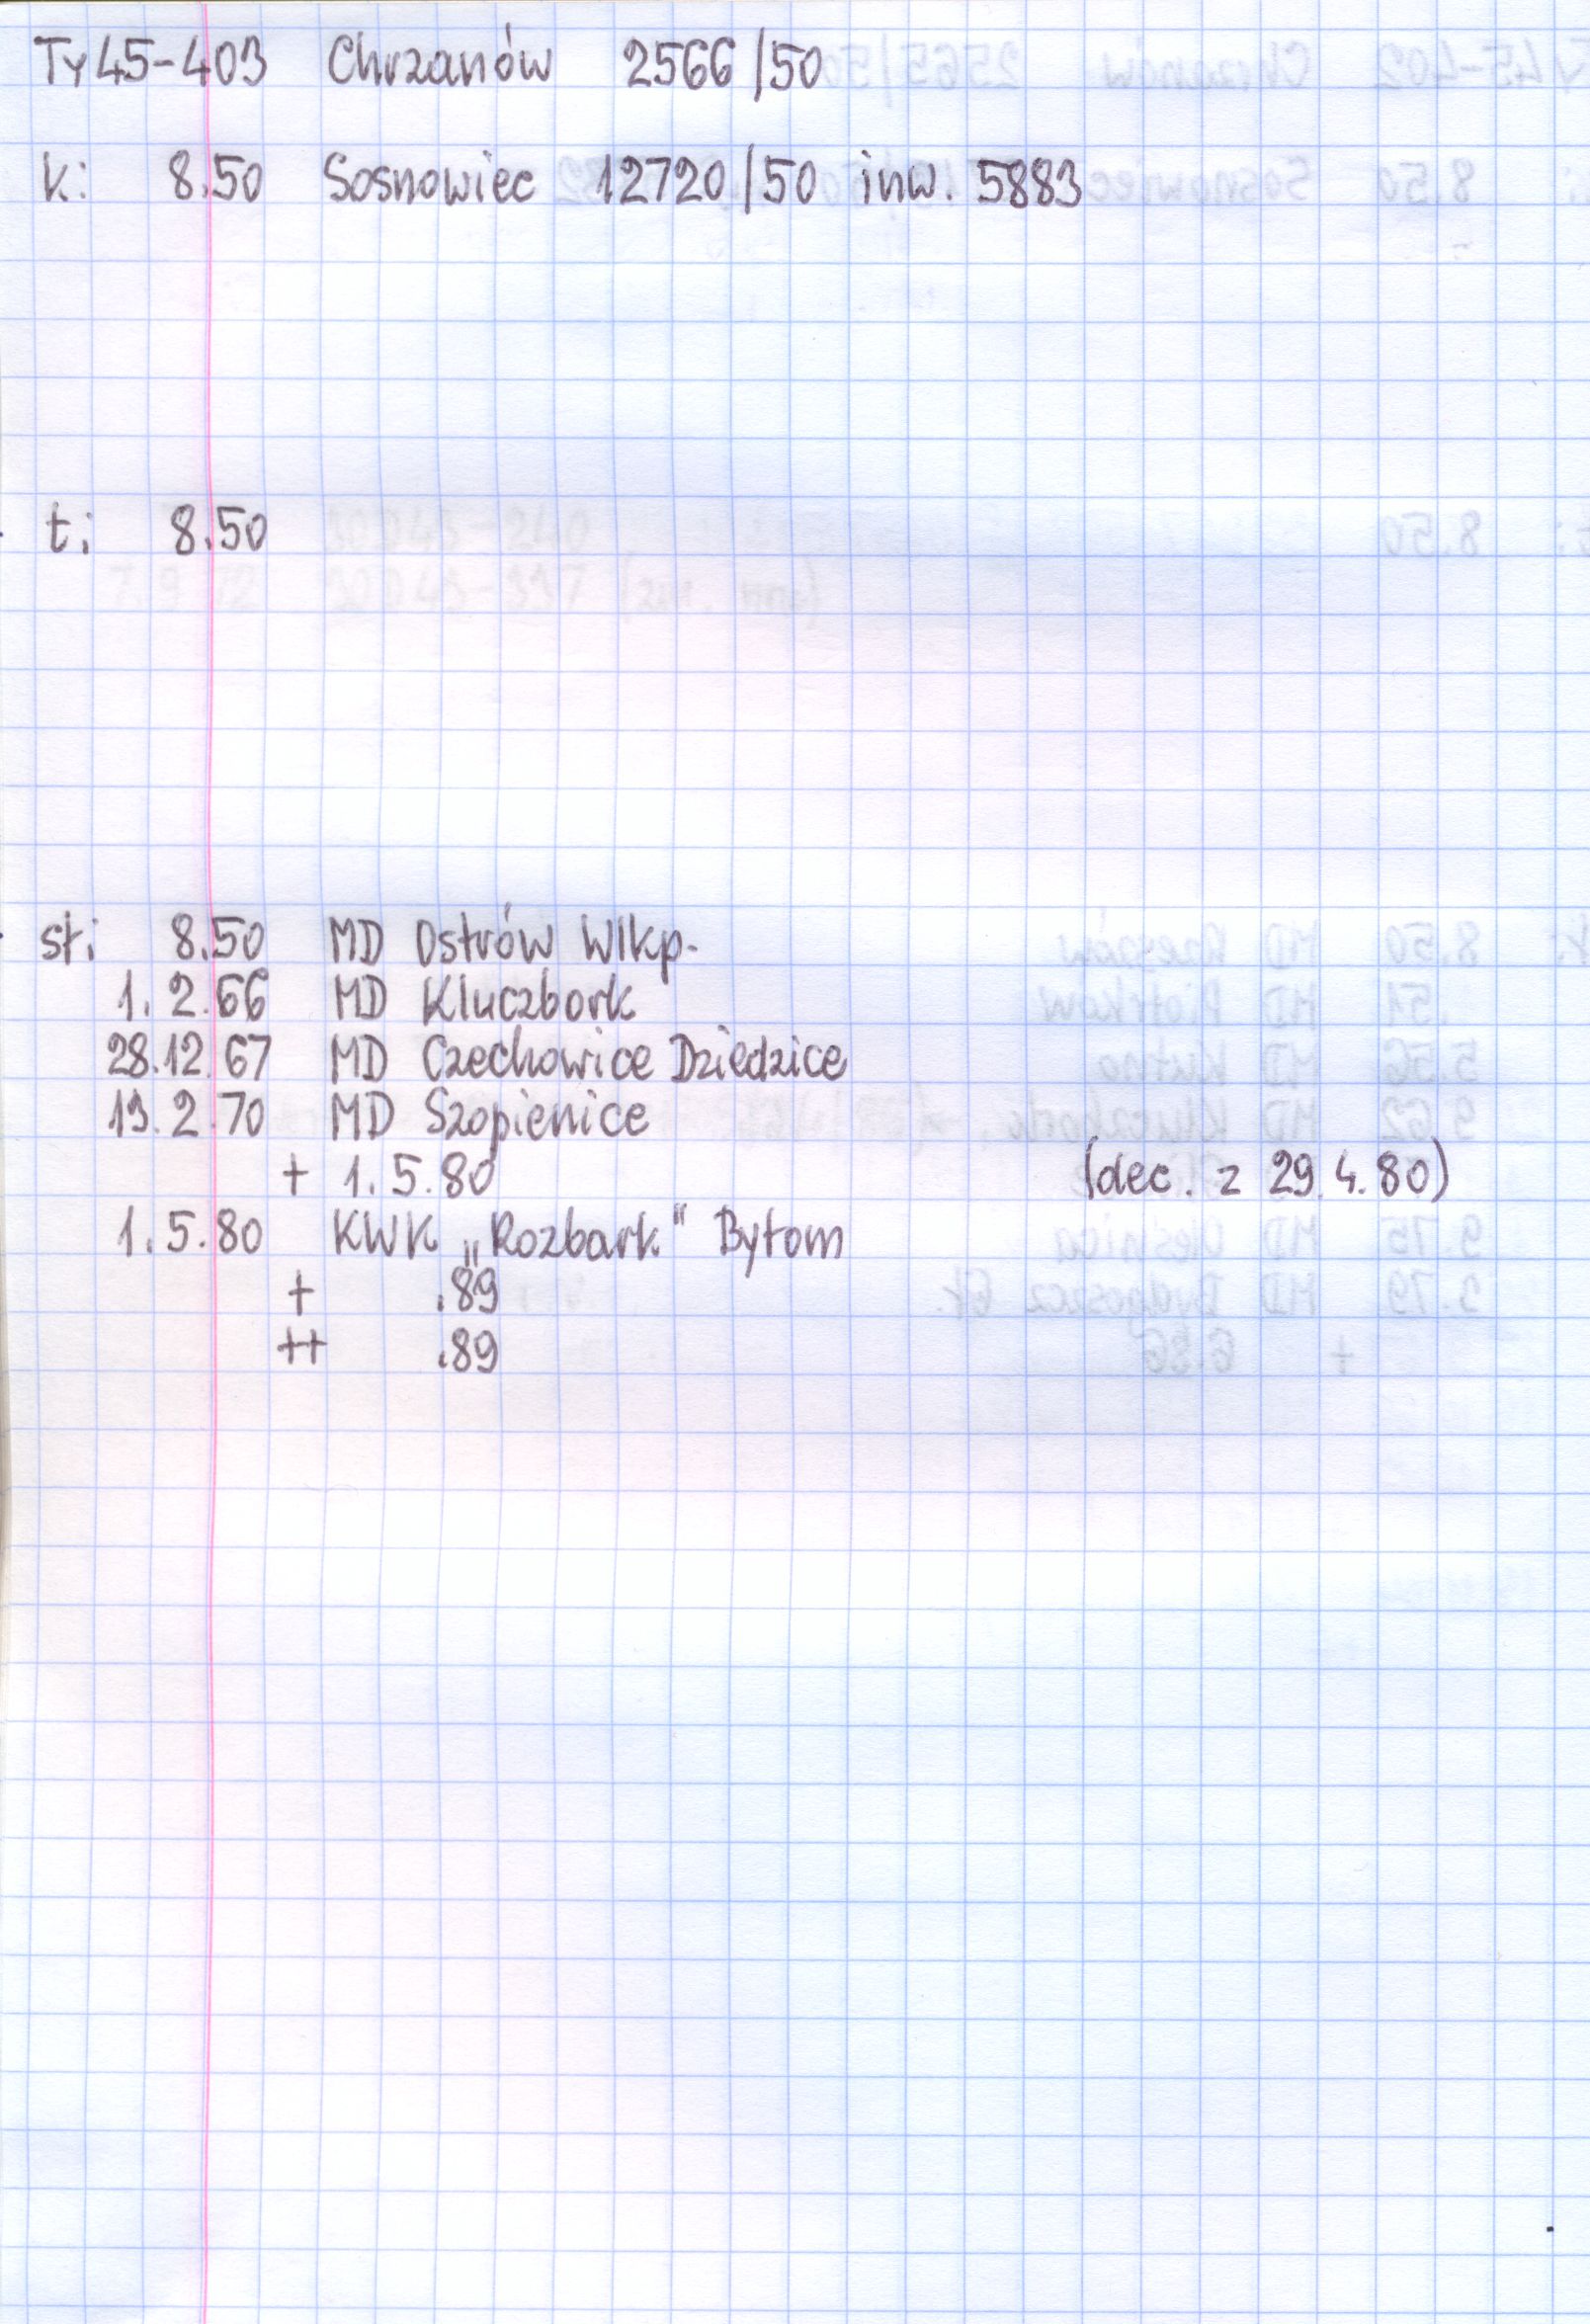 Ty45-403 Chrzanów 2566/50
k: 8.50 Sosnowiec 12720/50 inw. 5883
t: 8.50
sł: 8.50 MD Ostrów Wlkp.
1.2.66 MD Kluczbork
28.12.67 MD Czechowice Dziedzice
19.2.70 MD Szopienice
+ 1.5.80 (dec. z 29.4.80)
1.5.80 KWK „Rozbark" Bytom
+ .89
++ .89